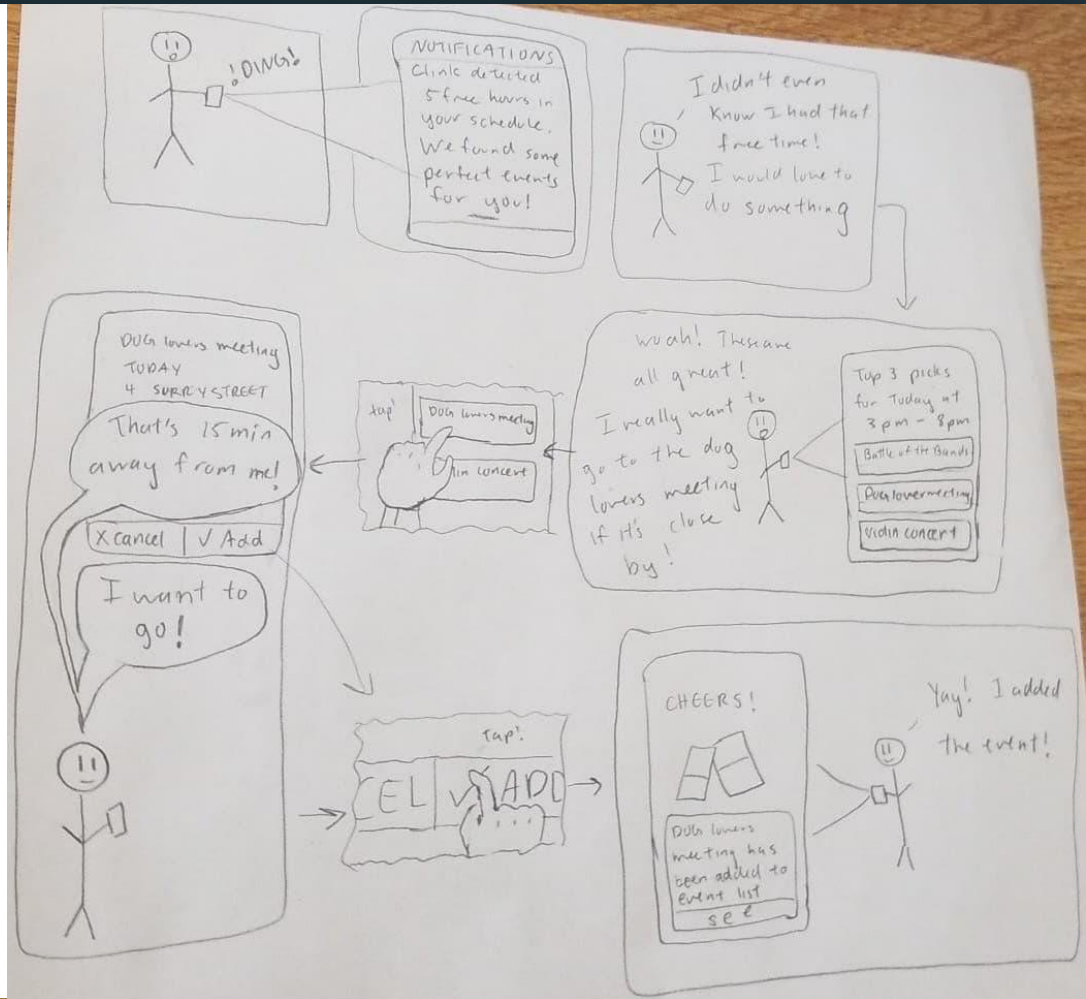 !DING!
NOTIFICATIONS
Clink detected
5 free hours in
your schedule.
We found some
perfect events
for you!
I didn't even
know I had that
free time!
I would love to
do something
woah! These are
all great!
I really want to
go to the dog
lovers meeting
if it's close
by!
Top 3 picks
for Today at
3pm - 8pm
Battle of the Bands
DOG lover meeting
violin concert
tap!
DOG lovers meeting
lin concert
DOG lovers meeting
TODAY
4 SURRY STREET
That's 15 min
away from me!
X cancel | √ Add
I want to
go!
Tap!
CEL √ ADD
CHEERS!
DOG lovers
meeting has
been added to
event list
see
Yay! I added
the event!